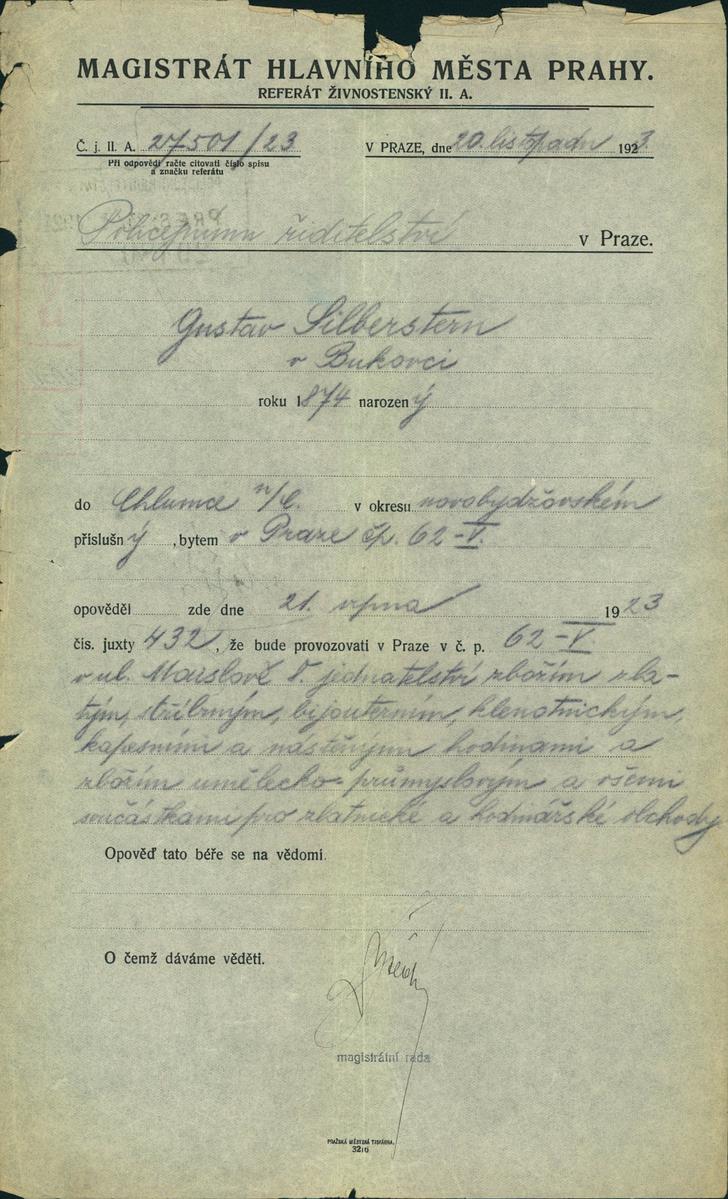 MAGISTRÁT HLAVNÍHO MĚSTA PRAHY.
REFERÁT ŽIVNOSTENSKÝ II. A.
Č. j. II. A. 27501/23
V PRAZE, dne 20. listopadu 1923.
Při odpovědi račte citovati číslo spisu
a značku referátu
Policejnímu ředitelství v Praze.
Gustav Silberstern
v Bukovci
roku 1874 narozený
do Chlumce n/C. v okresu novobydžovském
příslušný, bytem v Praze čp. 62-V.
opověděl zde dne 21. srpna 1923
čís. juxty 432, že bude provozovati v Praze v č. p. 62-V
v ul. Maislově 8. jednatelství zbožím zla-
tým, stříbrným, bijouterním, klenotnickým,
kapesními a nástěnými hodinami a
zbožím umělecko-průmyslovým a všemi
součástkami pro zlatnické a hodinářské obchody
Opověď tato béře se na vědomí.
O čemž dáváme věděti.
magistrátní rada
PRAŽSKÁ MĚSTSKÁ TISKÁRNA.
3216